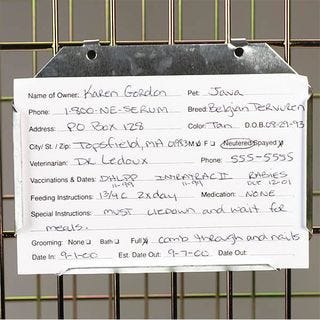 Name of Owner: Karen Gordon Pet: Java
Phone: 1-800-NE-SERUM Breed: Belgian Tervuren
Address: PO Box 128 Color: Tan D.O.B. 03-29-93
City/ St. / Zip: Topsfield, MA 01983 M F Neutered Spayed
Veterinarian: DR Ledoux Phone: 555-5555
Vaccinations & Dates: DHLPP INTRATRAC II RABIES
11-99 11-99 DUE 12-01
Feeding Instructions: 1 3/4 C 2x day Medication: NONE
Special Instructions: MUST lie down and wait for
meals.
Grooming: None Bath Full comb through and nails
Date In: 9-1-00 Est. Date Out: 9-7-00 Date Out: